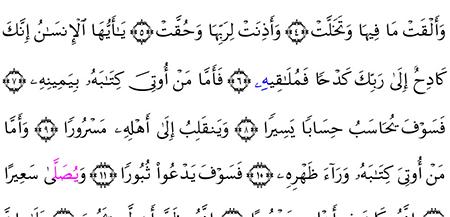 وَأَلْقَتْ مَا فِيهَا وَتَخَلَّتْ ﴿٤﴾ وَأَذِنَتْ لِرَبِّهَا وَحُقَّتْ ﴿٥﴾ يَٰٓأَيُّهَا ٱلْإِنسَٰنُ إِنَّكَ
كَادِحٌ إِلَىٰ رَبِّكَ كَدْحًا فَمُلَٰقِيهِۦ ﴿٦﴾ فَأَمَّا مَنْ أُوتِيَ كِتَٰبَهُۥ بِيَمِينِهِۦ ﴿٧﴾
فَسَوْفَ يُحَاسَبُ حِسَابًا يَسِيرًا ﴿٨﴾ وَيَنقَلِبُ إِلَىٰٓ أَهْلِهِۦ مَسْرُورًا ﴿٩﴾ وَأَمَّا
مَنْ أُوتِيَ كِتَٰبَهُۥ وَرَآءَ ظَهْرِهِۦ ﴿١٠﴾ فَسَوْفَ يَدْعُواْ ثُبُورًا ﴿١١﴾ وَيُصَلَّىٰ سَعِيرًا